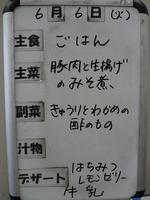 6月6日(火)
主食 ごはん
主菜 豚肉と生揚げ
のみそ煮
副菜 きゅうりとわかめの
酢のもの
汁物
デザート はちみつ
レモンゼリー
牛乳